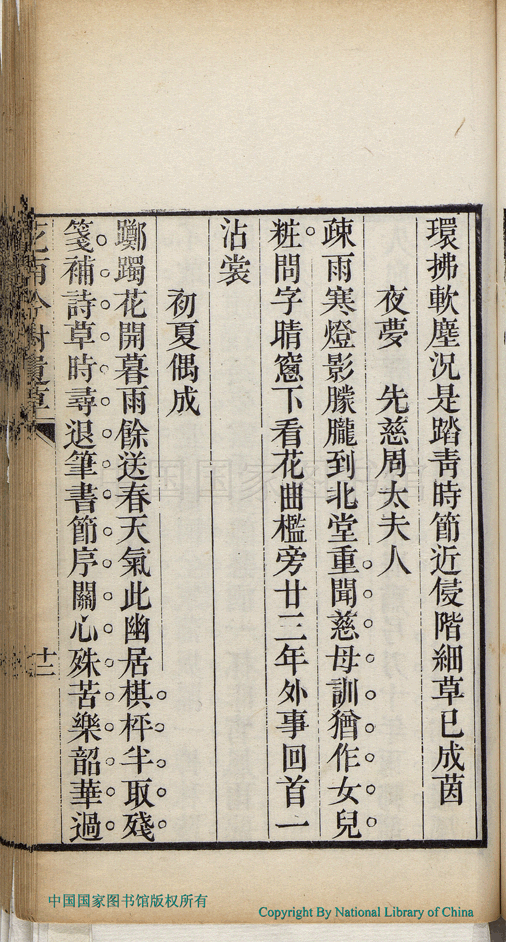 環拂軟塵況是踏靑時節近侵階細草已成茵
夜夢　先慈周太夫人
疎雨寒燈影朦朧到北堂重聞慈母訓猶作女兒
粧問字晴窻下看花曲檻旁廿三年外事回首一
沾裳
初夏偶成
躑躅花開暮雨餘送春天氣此幽居棋枰半取殘
箋補詩草時尋退筆書節序關心殊苦樂韶華過
遺草
廿二
中国国家图书馆
中国国家图书馆版权所有
Copyright By National Library of China